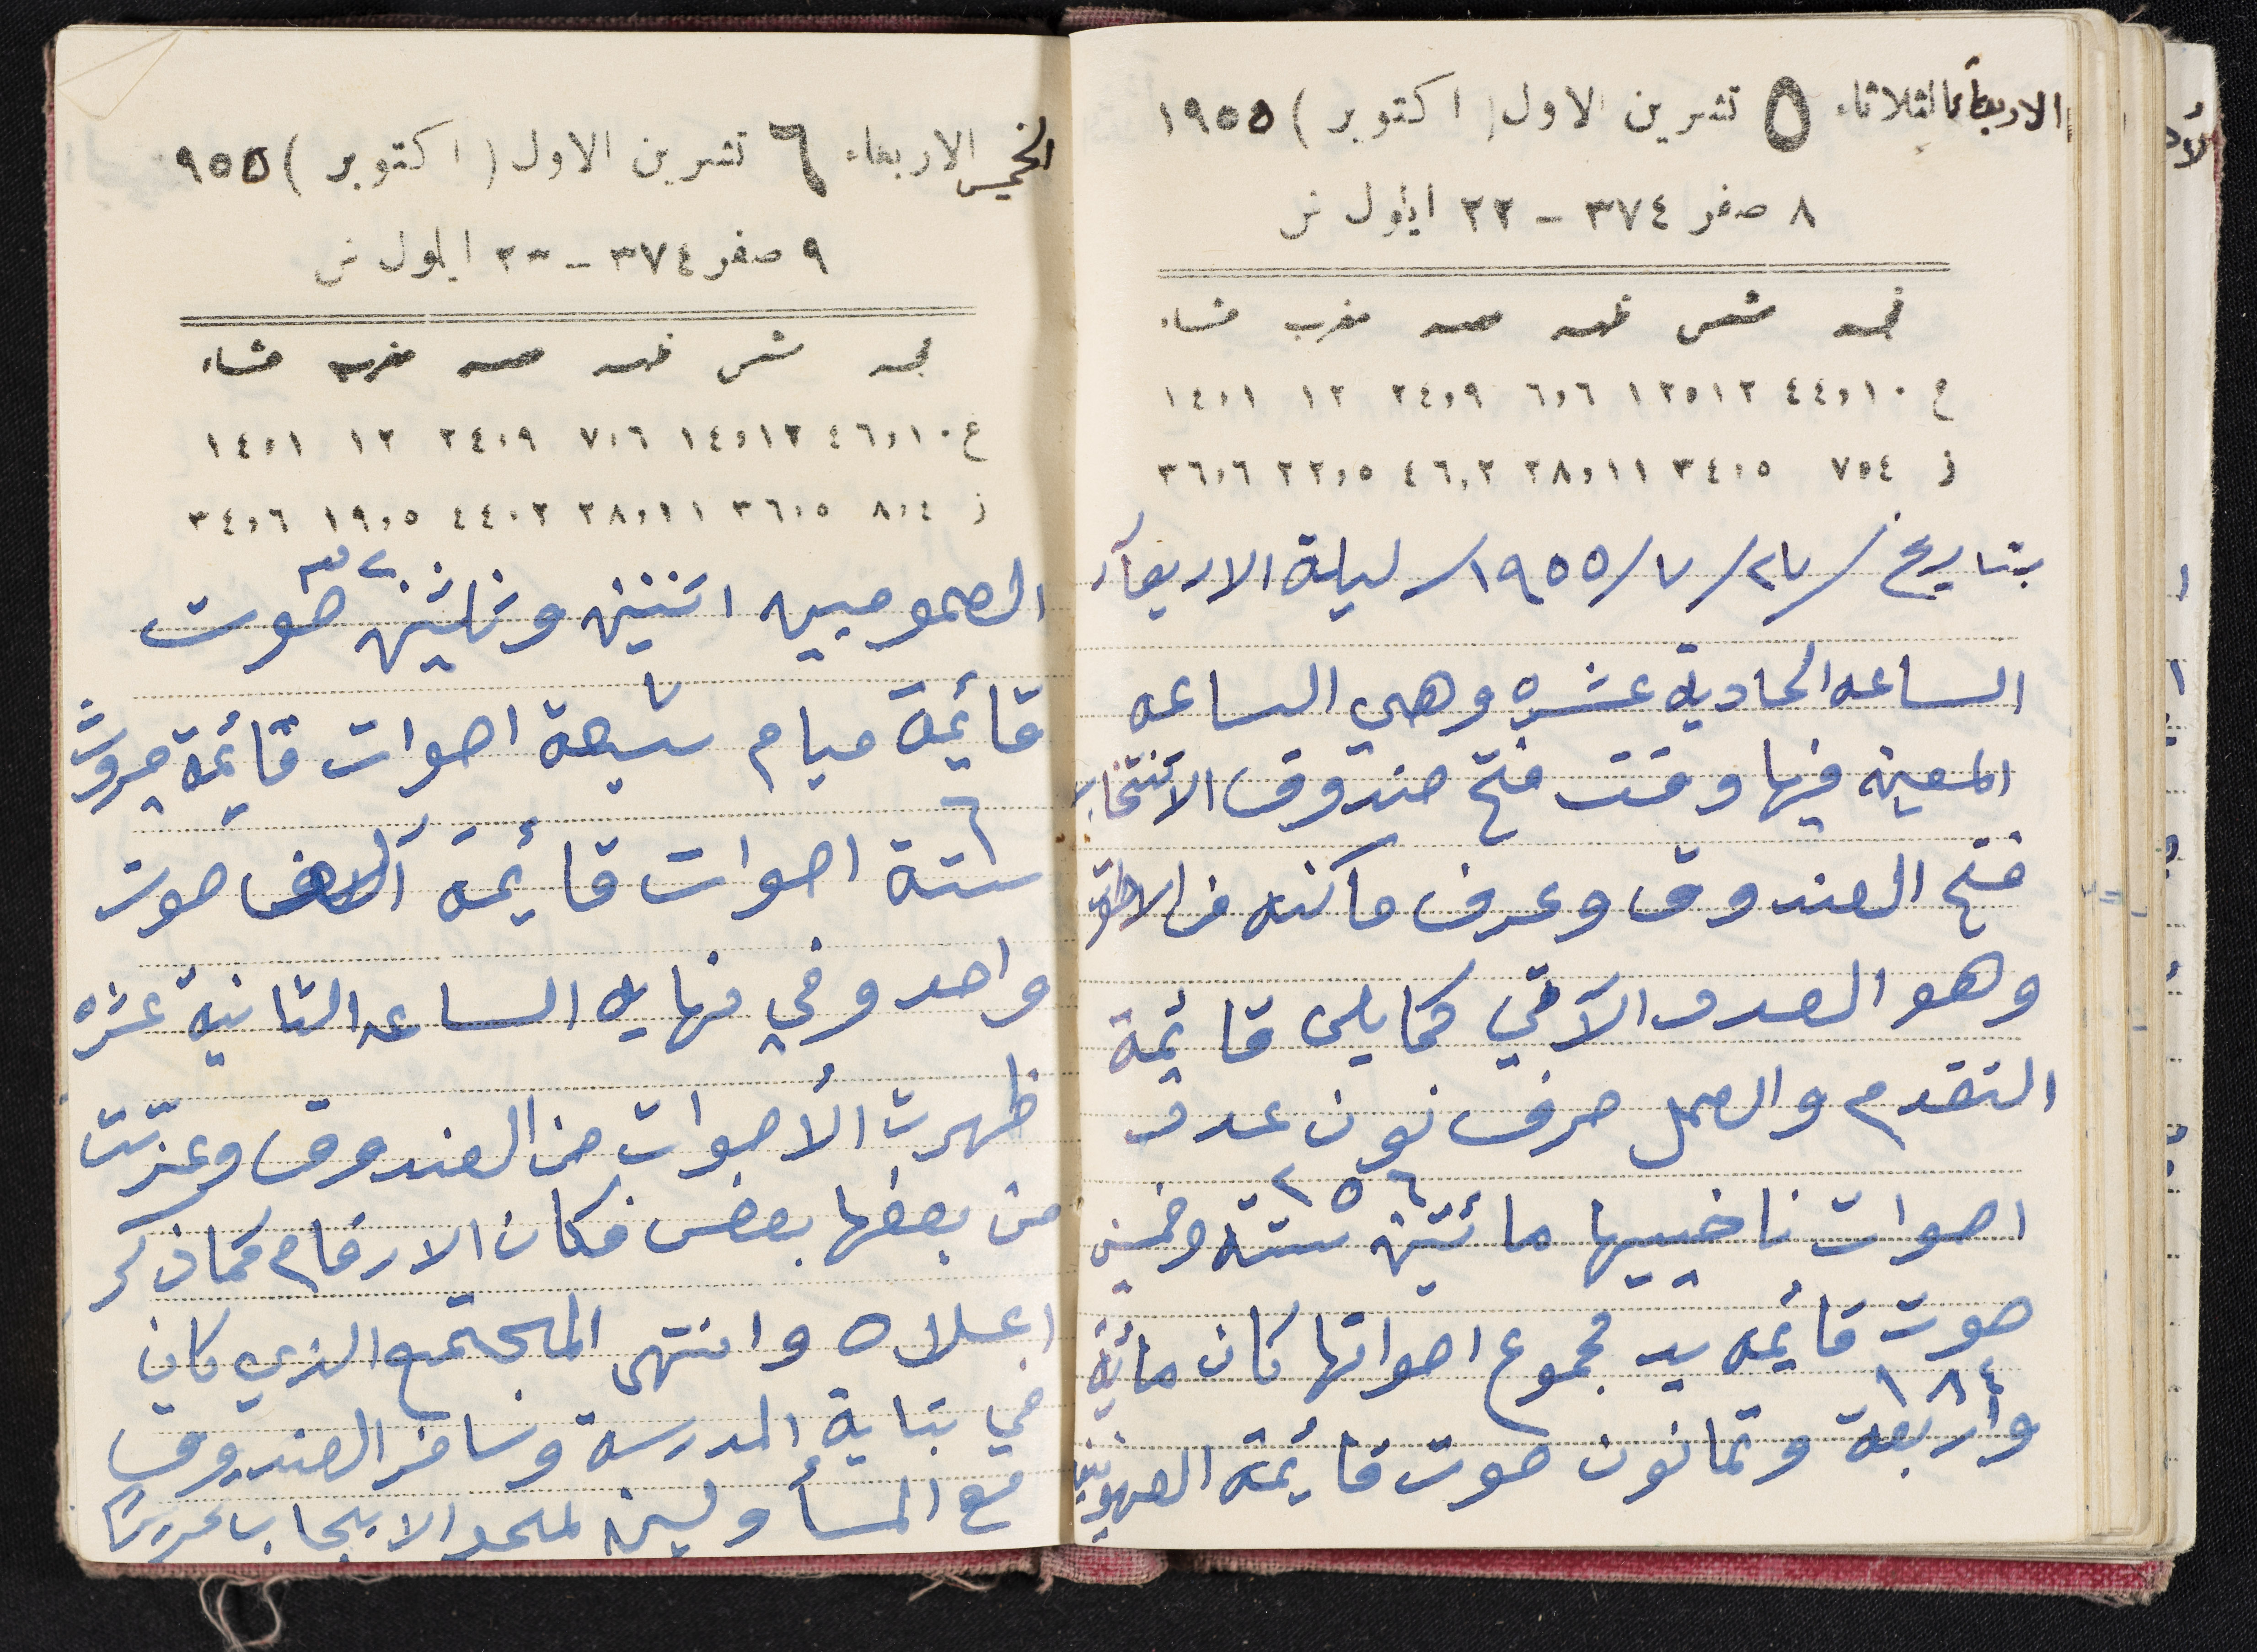 الاربعاء الثلاثاء ٥ تشرين الاول ( اكتوبر ) ١٩٥٥
٨ صفر ٣٧٤ - ٢٢ ايلول ش
فجر شمس ظهر عصر مغرب عشاء
ع ٤٤,١٠ ١٢,١٢ ٦,٦ ٢٤,٩ ١٢ ١٤,١
ز ٧,٤ ٣٤,٥ ٢٨,١١ ٤٦,٢ ٢٢,٥ ٣٦,٦
بتاريخ / ٢٧ / ٧ / ١٩٥٥ / ليلة الاربعآء
الساعه الحادية عشره وهي الساعه
المعينه فيها وقت فتح صندوق الانتخاب
فتح الصندوق وعرف ماكنه من الاصوات
وهو العدد الآتي كما يلي قائمة
التقدم والعمل حرف نون عدد
اصوات ناخبيها مائتين ستة وخمسين ٢٥٦
صوت قائمه يد مجموع اصواتها كان مائة
واربعة وثمانون صوت قائمة الصهيونيين ١٨٤
الخميس الاربعاء ٦ تشرين الاول ( اكتوبر ) ٩٥٥
٩ صفر ٣٧٤ - ٢٣ ايلول ش
فجر شمس ظهر عصر مغرب عشاء
ع ٤٦,١٠ ١٤,١٢ ٧,٦ ٢٤,٩ ١٢ ١٤,١
ز ٨,٤ ٣٦,٥ ٢٨,١١ ٤٤,٢ ١٩,٥ ٣٤,٦
العموميين اثنين وثلثين صوت ٣٢
قائمة ميام سبعة اصوات قائمة حيروت ٧
ستة اصوات قائمة ألف صوت ٦
واحد وفي نهاية الساعه الثانية عشره
ظهرت الأصوات من الصندوق وعزلت
من بعضها بعض فكان الارقام كما ذكر
اعلاه وانتهى المجتمع الذي كان
في بناية المدرسة وسافر الصندوق
مع المسأولين لمحد الايجاب